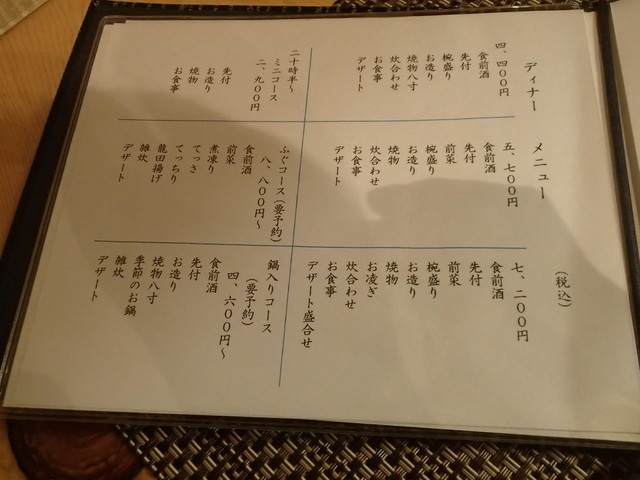 ディナー メニュー (税込)
四、四００円
食前酒
先付
椀盛り
お造り
焼物八寸
炊合わせ
お食事
デザート
五、七００円
食前酒
先付
前菜
椀盛り
お造り
焼物
炊合わせ
お食事
デザート
七、二００円
食前酒
先付
前菜
椀盛り
お造り
焼物
お凌ぎ
炊合わせ
お食事
デザート盛合せ
二十時半～
ミニコース
二、九００円
先付
お造り
焼物
お食事
ふぐコース(要予約)
八、八００円～
食前酒
前菜
煮凍り
てっさ
てっちり
龍田揚げ
雑炊
デザート
鍋入りコース
(要予約)
四、六００円～
食前酒
先付
お造り
焼物八寸
季節のお鍋
雑炊
デザート